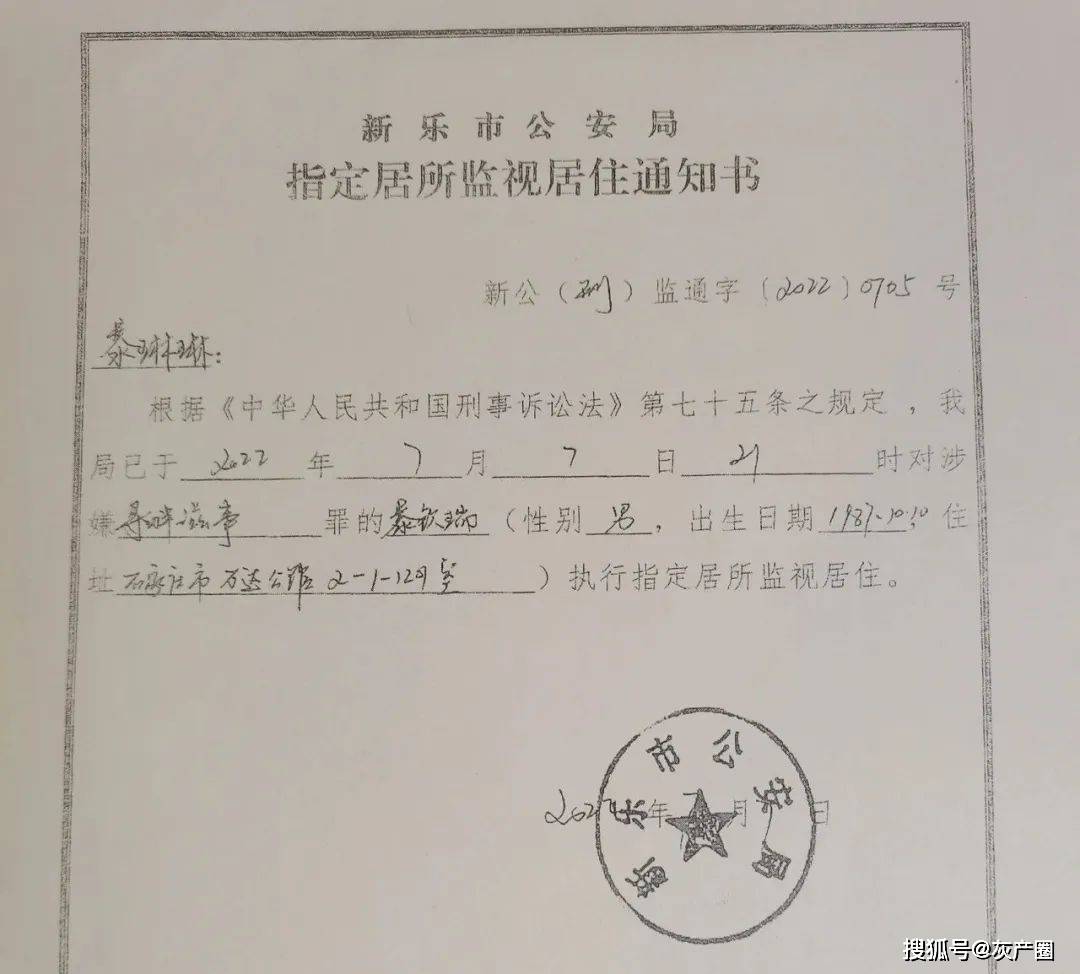 新乐市公安局
指定居所监视居住通知书
新公（刑）监通字〔2022〕0705号
暴琳琳：
根据《中华人民共和国刑事诉讼法》第七十五条之规定，我
局已于 2022 年 7 月 7 日 21 时对涉
嫌寻衅滋事 罪的暴钦瑞（性别 男，出生日期 1987.10.10 住
址石家庄市万达公馆 2-1-129室 ）执行指定居所监视居住。
新乐市公安局
年 月 日
搜狐号@灰产圈